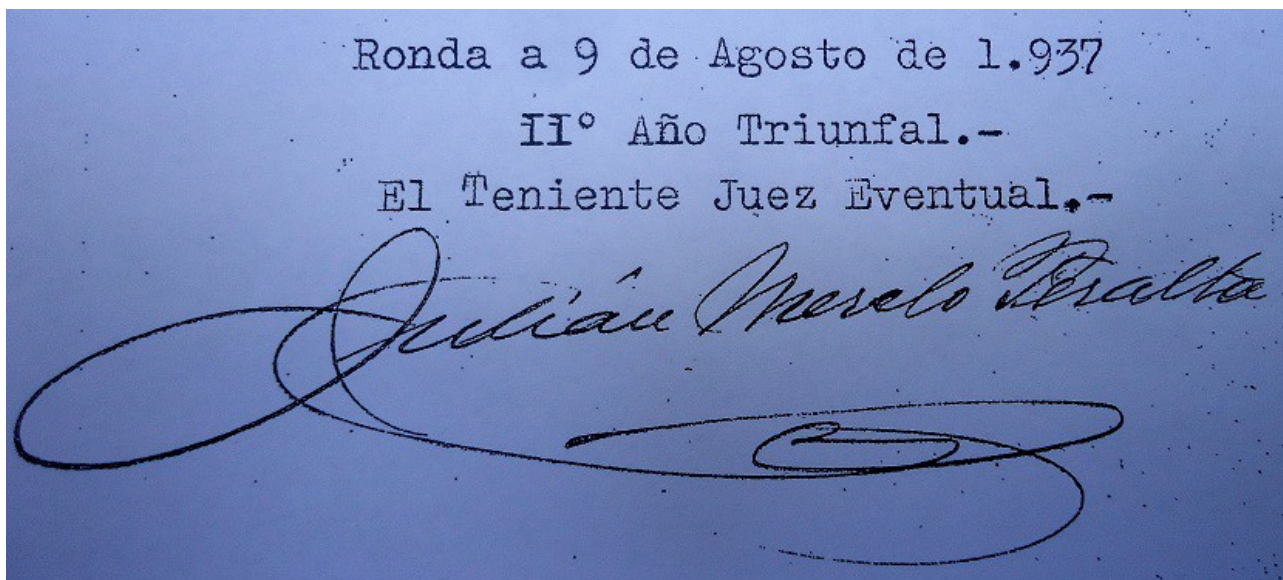 Ronda a 9 de Agosto de 1.937
II° Año Triunfal.-
El Teniente Juez Eventual.-
Julián Merelo Peralta